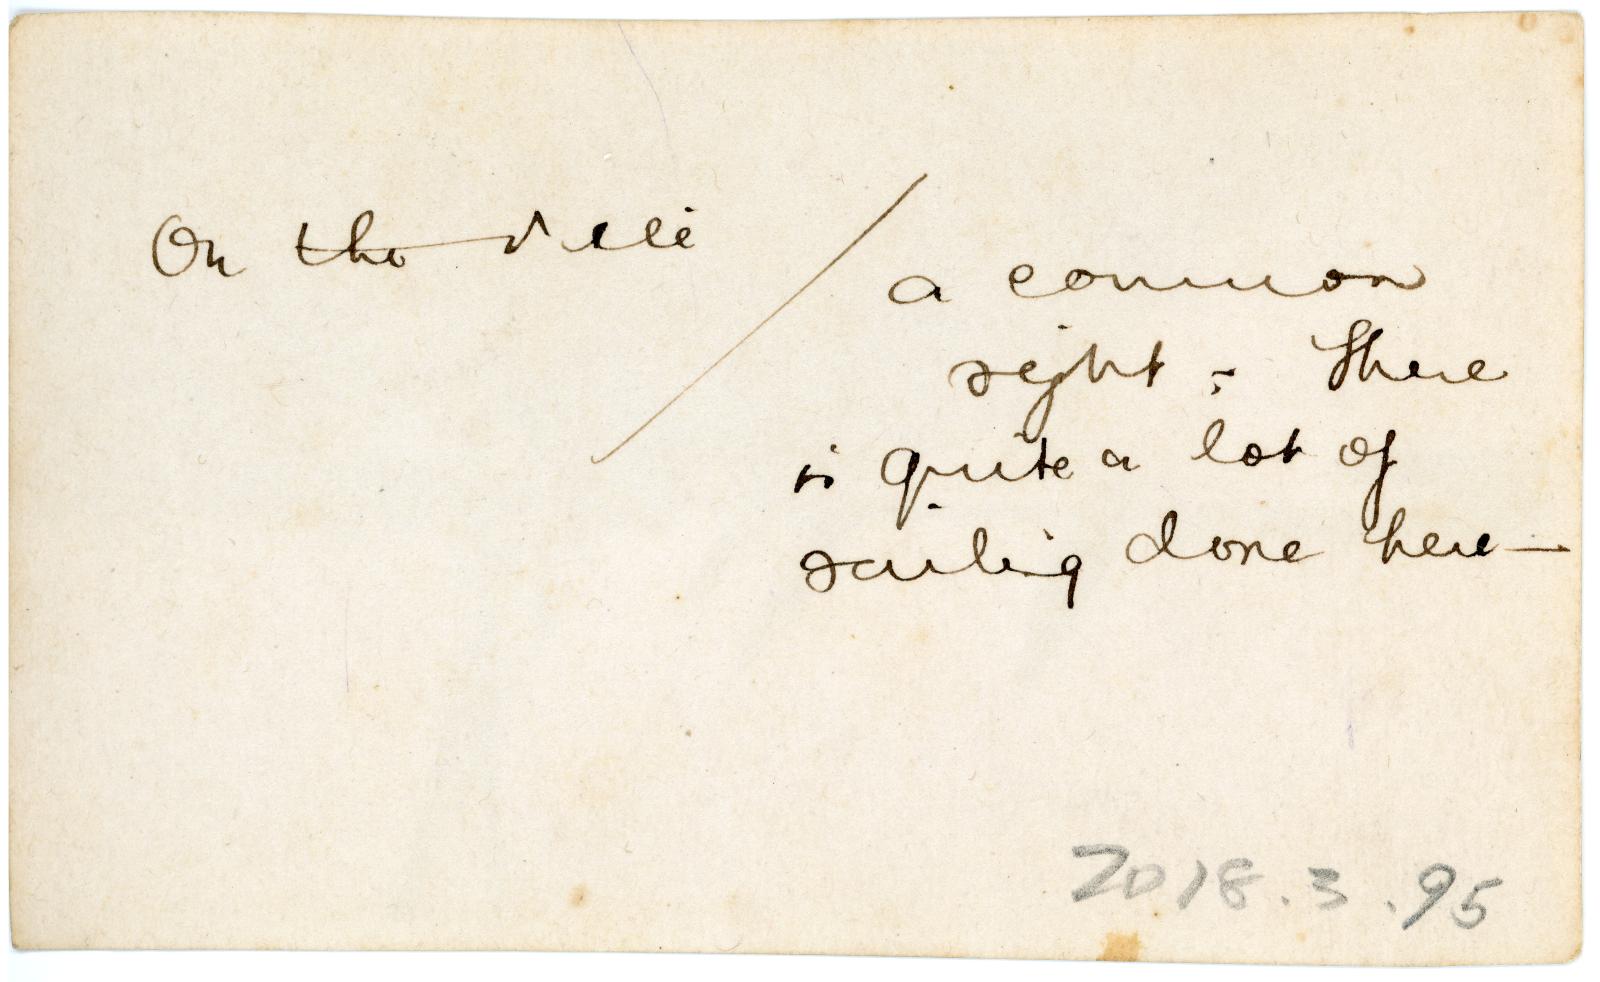 On the
a common
sight - There
is quite a lot of
sailing done here —
2018.3.95